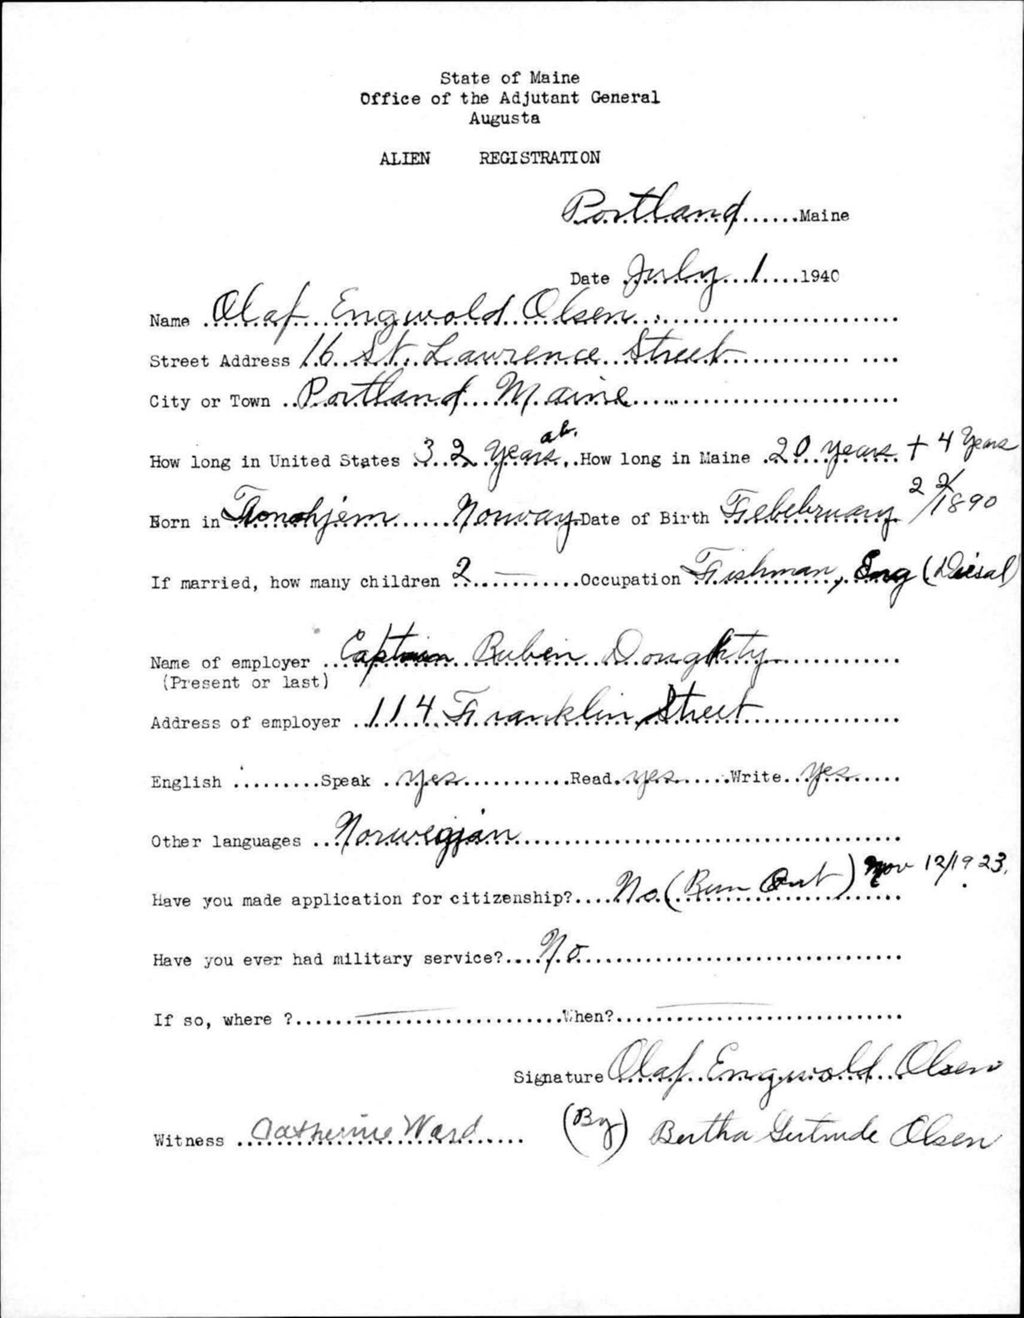 State of Maine
Office of the Adjutant General
Augusta
ALIEN REGISTRATION
Portland......Maine
Date July 1....1940
Name Olaf Engwold Olsen
Street Address 16 St. Lawrence Street
City or Town Portland Maine
How long in United States 32 years ab. How long in Maine 20 years + 4 years
Born in Tronohjem Norway Date of Birth Febebruary 22/1890
If married, how many children 2 Occupation Fishman, Eng (Diesal)
Name of employer Captain Ruben Doughty
(Present or last)
Address of employer 114 Franklin Street
English .........Speak yes Read yes Write yes
Other languages Norwegian
Have you made application for citizenship?....No (Run Out) Nov 12/1923.
Have you ever had military service?....No
If so, where ? When?
Signature Olaf Engwold Olsen
Witness Catherine Ward (By) Bertha Gertrude Olsen